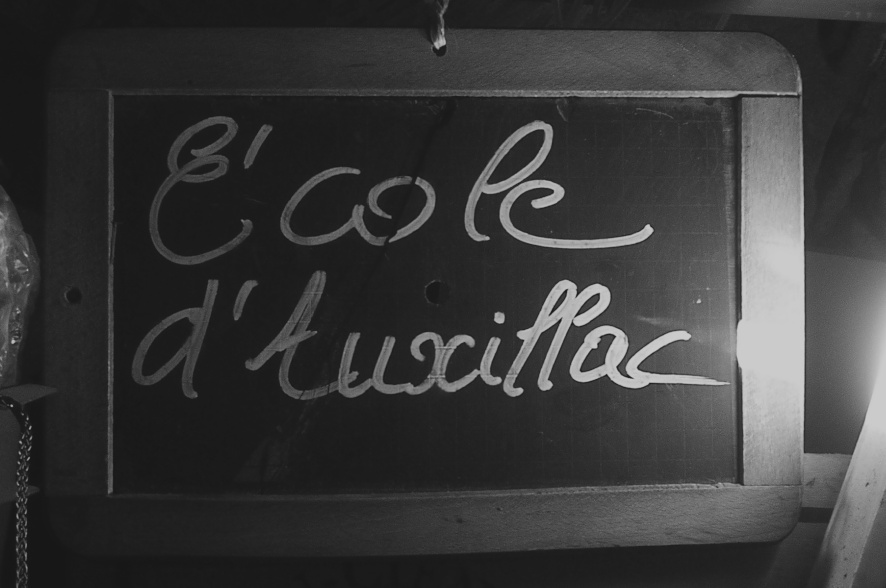 École
d'Auxillac